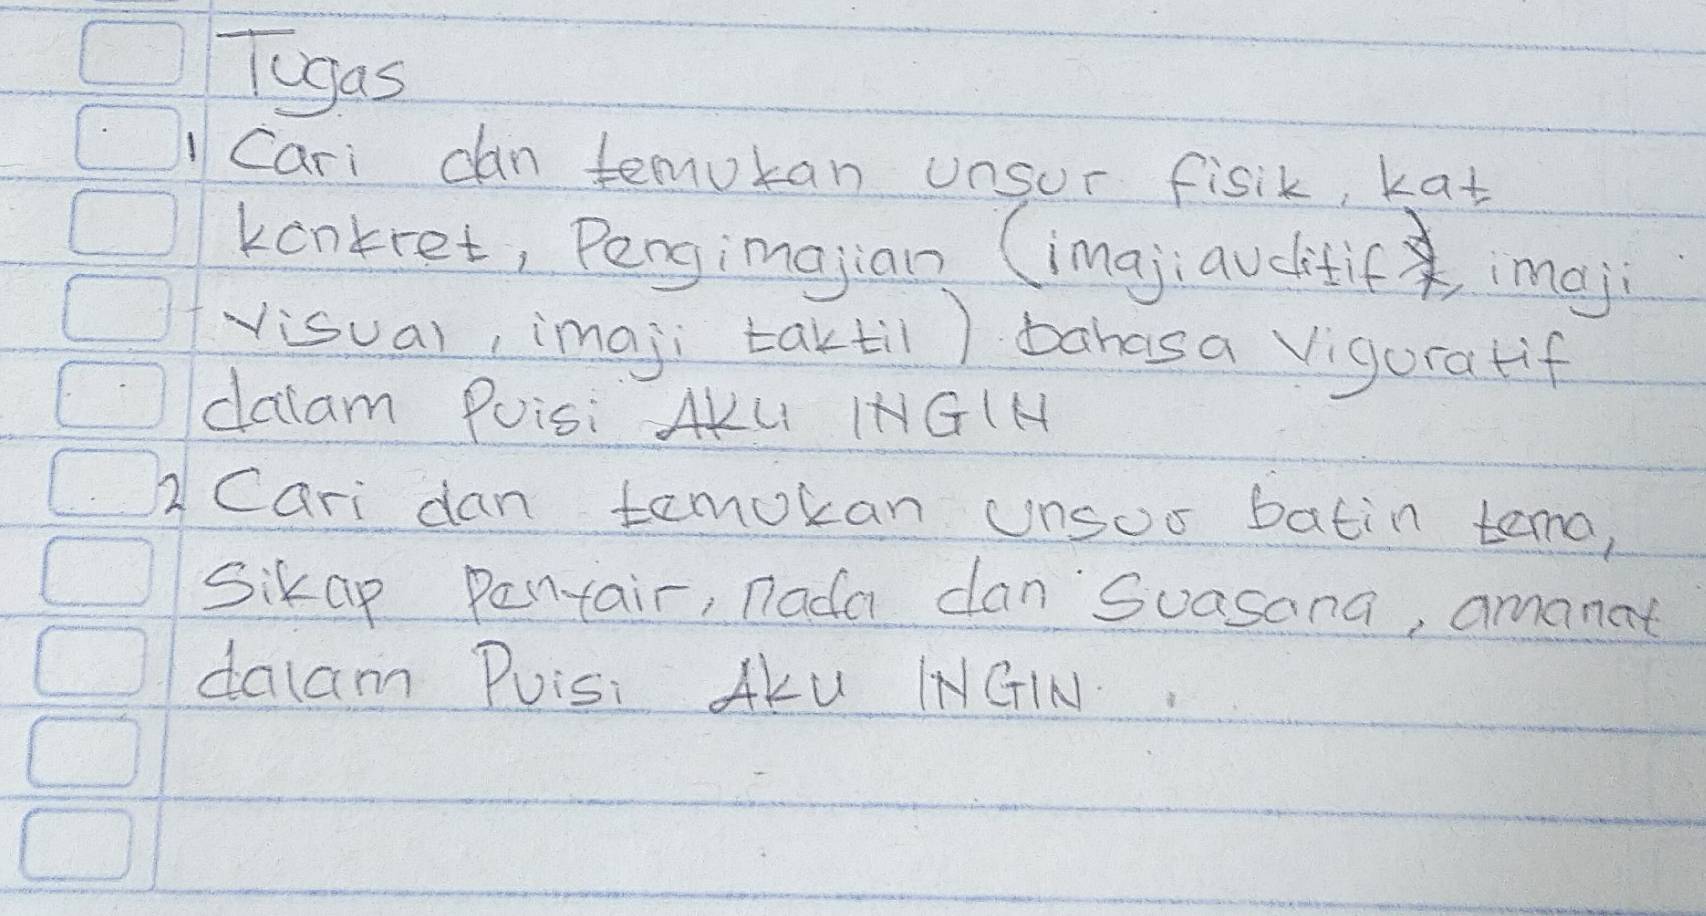 Tugas
1 Cari dan temukan unsur fisik, kat
konkret, Pengimajian (imaji auditif, imaji
visual, imaji taktil) bahasa viguratif
dalam Puisi AKU INGIN
2 Cari dan temukan unsur batin tema,
Sikap Penyair, nada dan Suasana, amanat
dalam Puisi AKU INGIN.